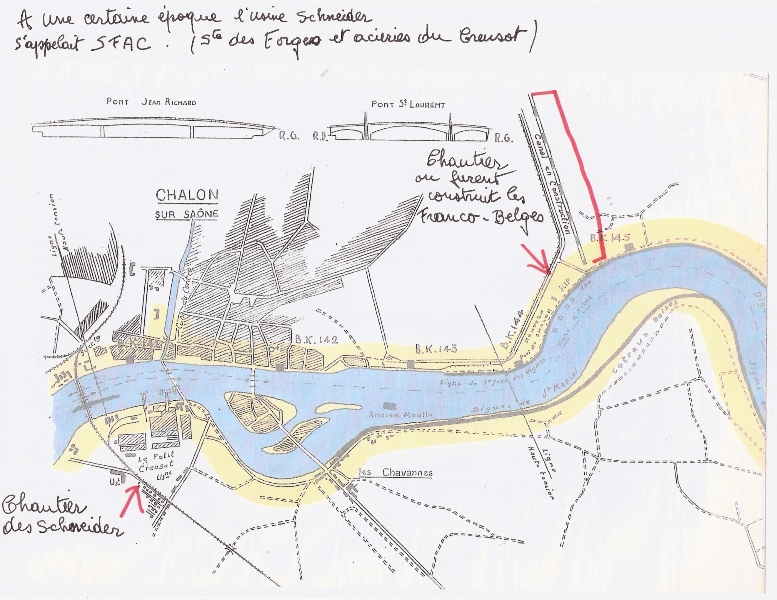 A une certaine époque l'usine Schneider
s'appelait SFAC. (Sté des Forges et aciéries du Creusot)
PONT JEAN RICHARD
R.G.
PONT St LAURENT
R.D.
R.G.
Chantier
ou furent
construit les
Franco-Belges
Canal en Construction
CHALON
SUR SAÔNE
B.K. 145
B.K. 144
B.K. 142
B.K. 143
Digue de St Marcel
Ancien Moulin
Ligne
Haute tension
Le Petit
Creusot
Usine
les Chavannes
Chantier
des Schneider